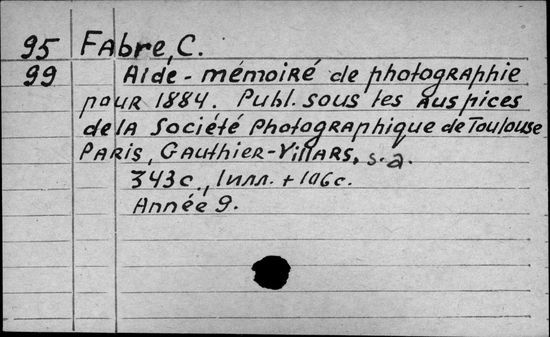 95 Fabre, C.
99 Aide-mémoiré de photographie
pour 1884. Publ. sous les auspices
de la Société Photographique de Toulouse
Paris, Gauthier-Villars, s.a.
343 с., Илл. + 106 с.
Année 9.